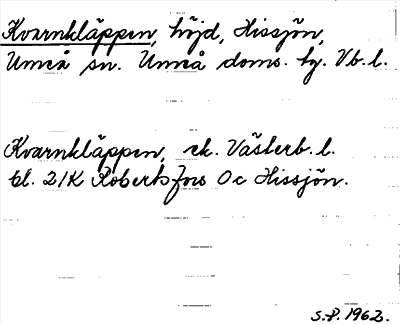 Kvarnkläppen, höjd, Hissjön,
Umeå sn. Umeå doms. hg. Vb. l.
Kvarnkläppen, ek. Västerb. l.
bl. 21K Robertsfors Oc Hissjön.
S.P. 1962.